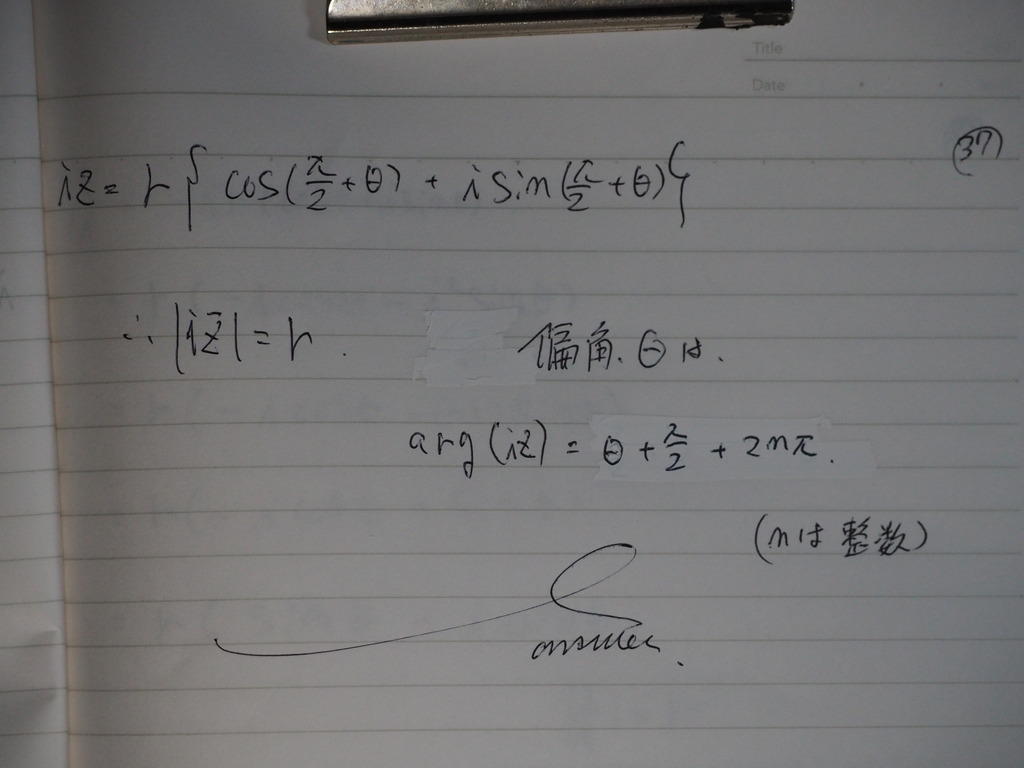 Title
Date
㊲
iz = r { cos(π/2 + θ) + i sin(π/2 + θ) }
∴ |iz| = r. 偏角、θは、
arg(iz) = θ + π/2 + 2nπ.
(nは整数)
answer.